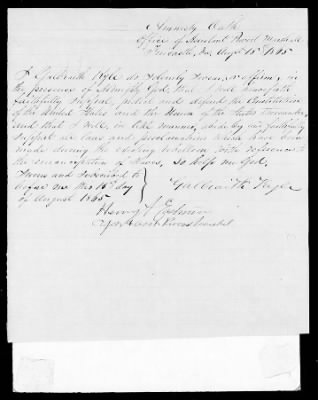 Amnesty Oath
Office of Assistant Provost Marshal
Augt 15th 1865
I Galbraith do Solemnly Swear, or affirm, in
the presence of Almighty God, that I will henceforth
faithfully support, protect and defend the Constitution
of the United States and the Union of the States thereunder,
and that I will, in like manner, abide by and faithfully
support all laws and proclamations which have been
made during the existing rebellion with reference to
the emancipation of slaves, so help me God.
Sworn and Subscribed to
before me this 15th day
of August 1865
Galbraith
Henry
Capt & Asst Provost Marshal